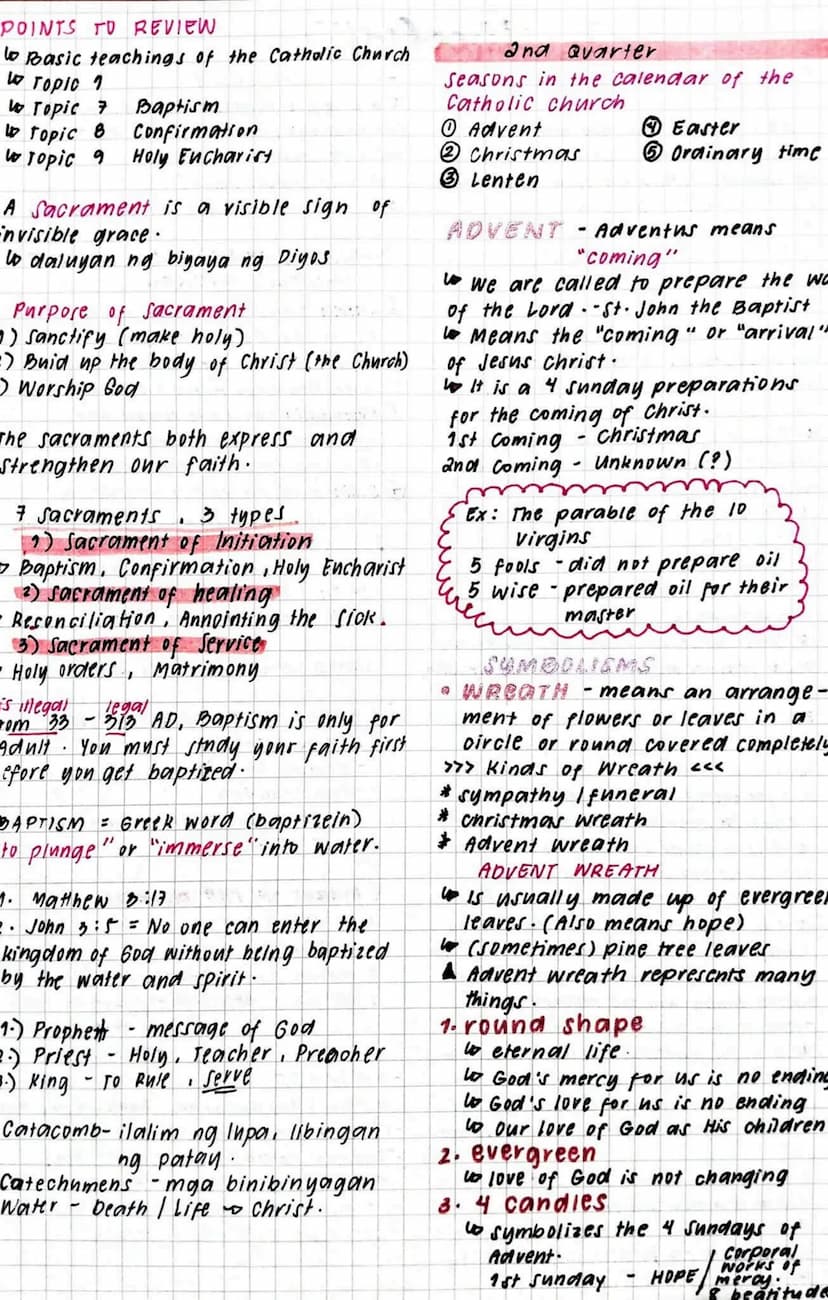 POINTS TO REVIEW
↳ Basic teachings of the Catholic Church
↳ Topic 1
↳ Topic 7 Baptism
↳ Topic 8 Confirmation
↳ Topic 9 Holy Eucharist
A Sacrament is a visible sign of
invisible grace.
↳ daluyan ng biyaya ng Diyos
Purpose of Sacrament
) Sanctify (make holy)
) Buid up the body of Christ (the Church)
) Worship God
The sacraments both express and
strengthen our faith.
7 Sacraments, 3 types
1) Sacrament of Initiation
Baptism, Confirmation, Holy Eucharist
2) Sacrament of healing
Reconciliation, Annointing the Sick.
3) Sacrament of Service
Holy orders, Matrimony
is illegal legal
rom 33 - 313 AD, Baptism is only for
Adult. You must study your faith first
efore you get baptized.
BAPTISM = Greek word (baptizein)
to plunge" or "immerse" into water.
1. Matthew 3:17
2. John 3:5 = No one can enter the
kingdom of God without being baptized
by the water and spirit.
1.) Prophet - message of God
2.) Priest - Holy, Teacher, Preacher
3.) King - To Rule, serve
Catacomb - ilalim ng lupa, libingan
ng patay.
Catechumens - mga binibinyagan
Water - Death / Life → Christ.
2nd Quarter
Seasons in the calendar of the
Catholic church
① Advent ④ Easter
② Christmas ⑤ Ordinary time
③ Lenten
ADVENT - Adventus means
"coming"
↳ We are called to prepare the wa
of the Lord. - St. John the Baptist
↳ Means the "coming" or "arrival"
of Jesus Christ.
↳ It is a 4 Sunday preparations
for the coming of Christ.
1st Coming - Christmas
2nd Coming - Unknown (?)
Ex: The parable of the 10
virgins
5 fools - did not prepare oil
5 wise - prepared oil for their
master
SYMBOLISMS
• WREATH - means an arrange-
ment of flowers or leaves in a
circle or round covered completely
>>> Kinds of Wreath <<<
* sympathy / funeral
* christmas wreath
* Advent wreath
ADVENT WREATH
↳ Is usually made up of evergreen
leaves. (Also means hope)
↳ (sometimes) pine tree leaves
▲ Advent wreath represents many
things.
1. round shape
↳ eternal life.
↳ God's mercy for us is no ending
↳ God's love for us is no ending
↳ Our love of God as His children
2. evergreen
↳ love of God is not changing
3. 4 candles
↳ symbolizes the 4 Sundays of
Advent.
1st Sunday - HOPE / corporal
works of
mercy.
8 beatitude